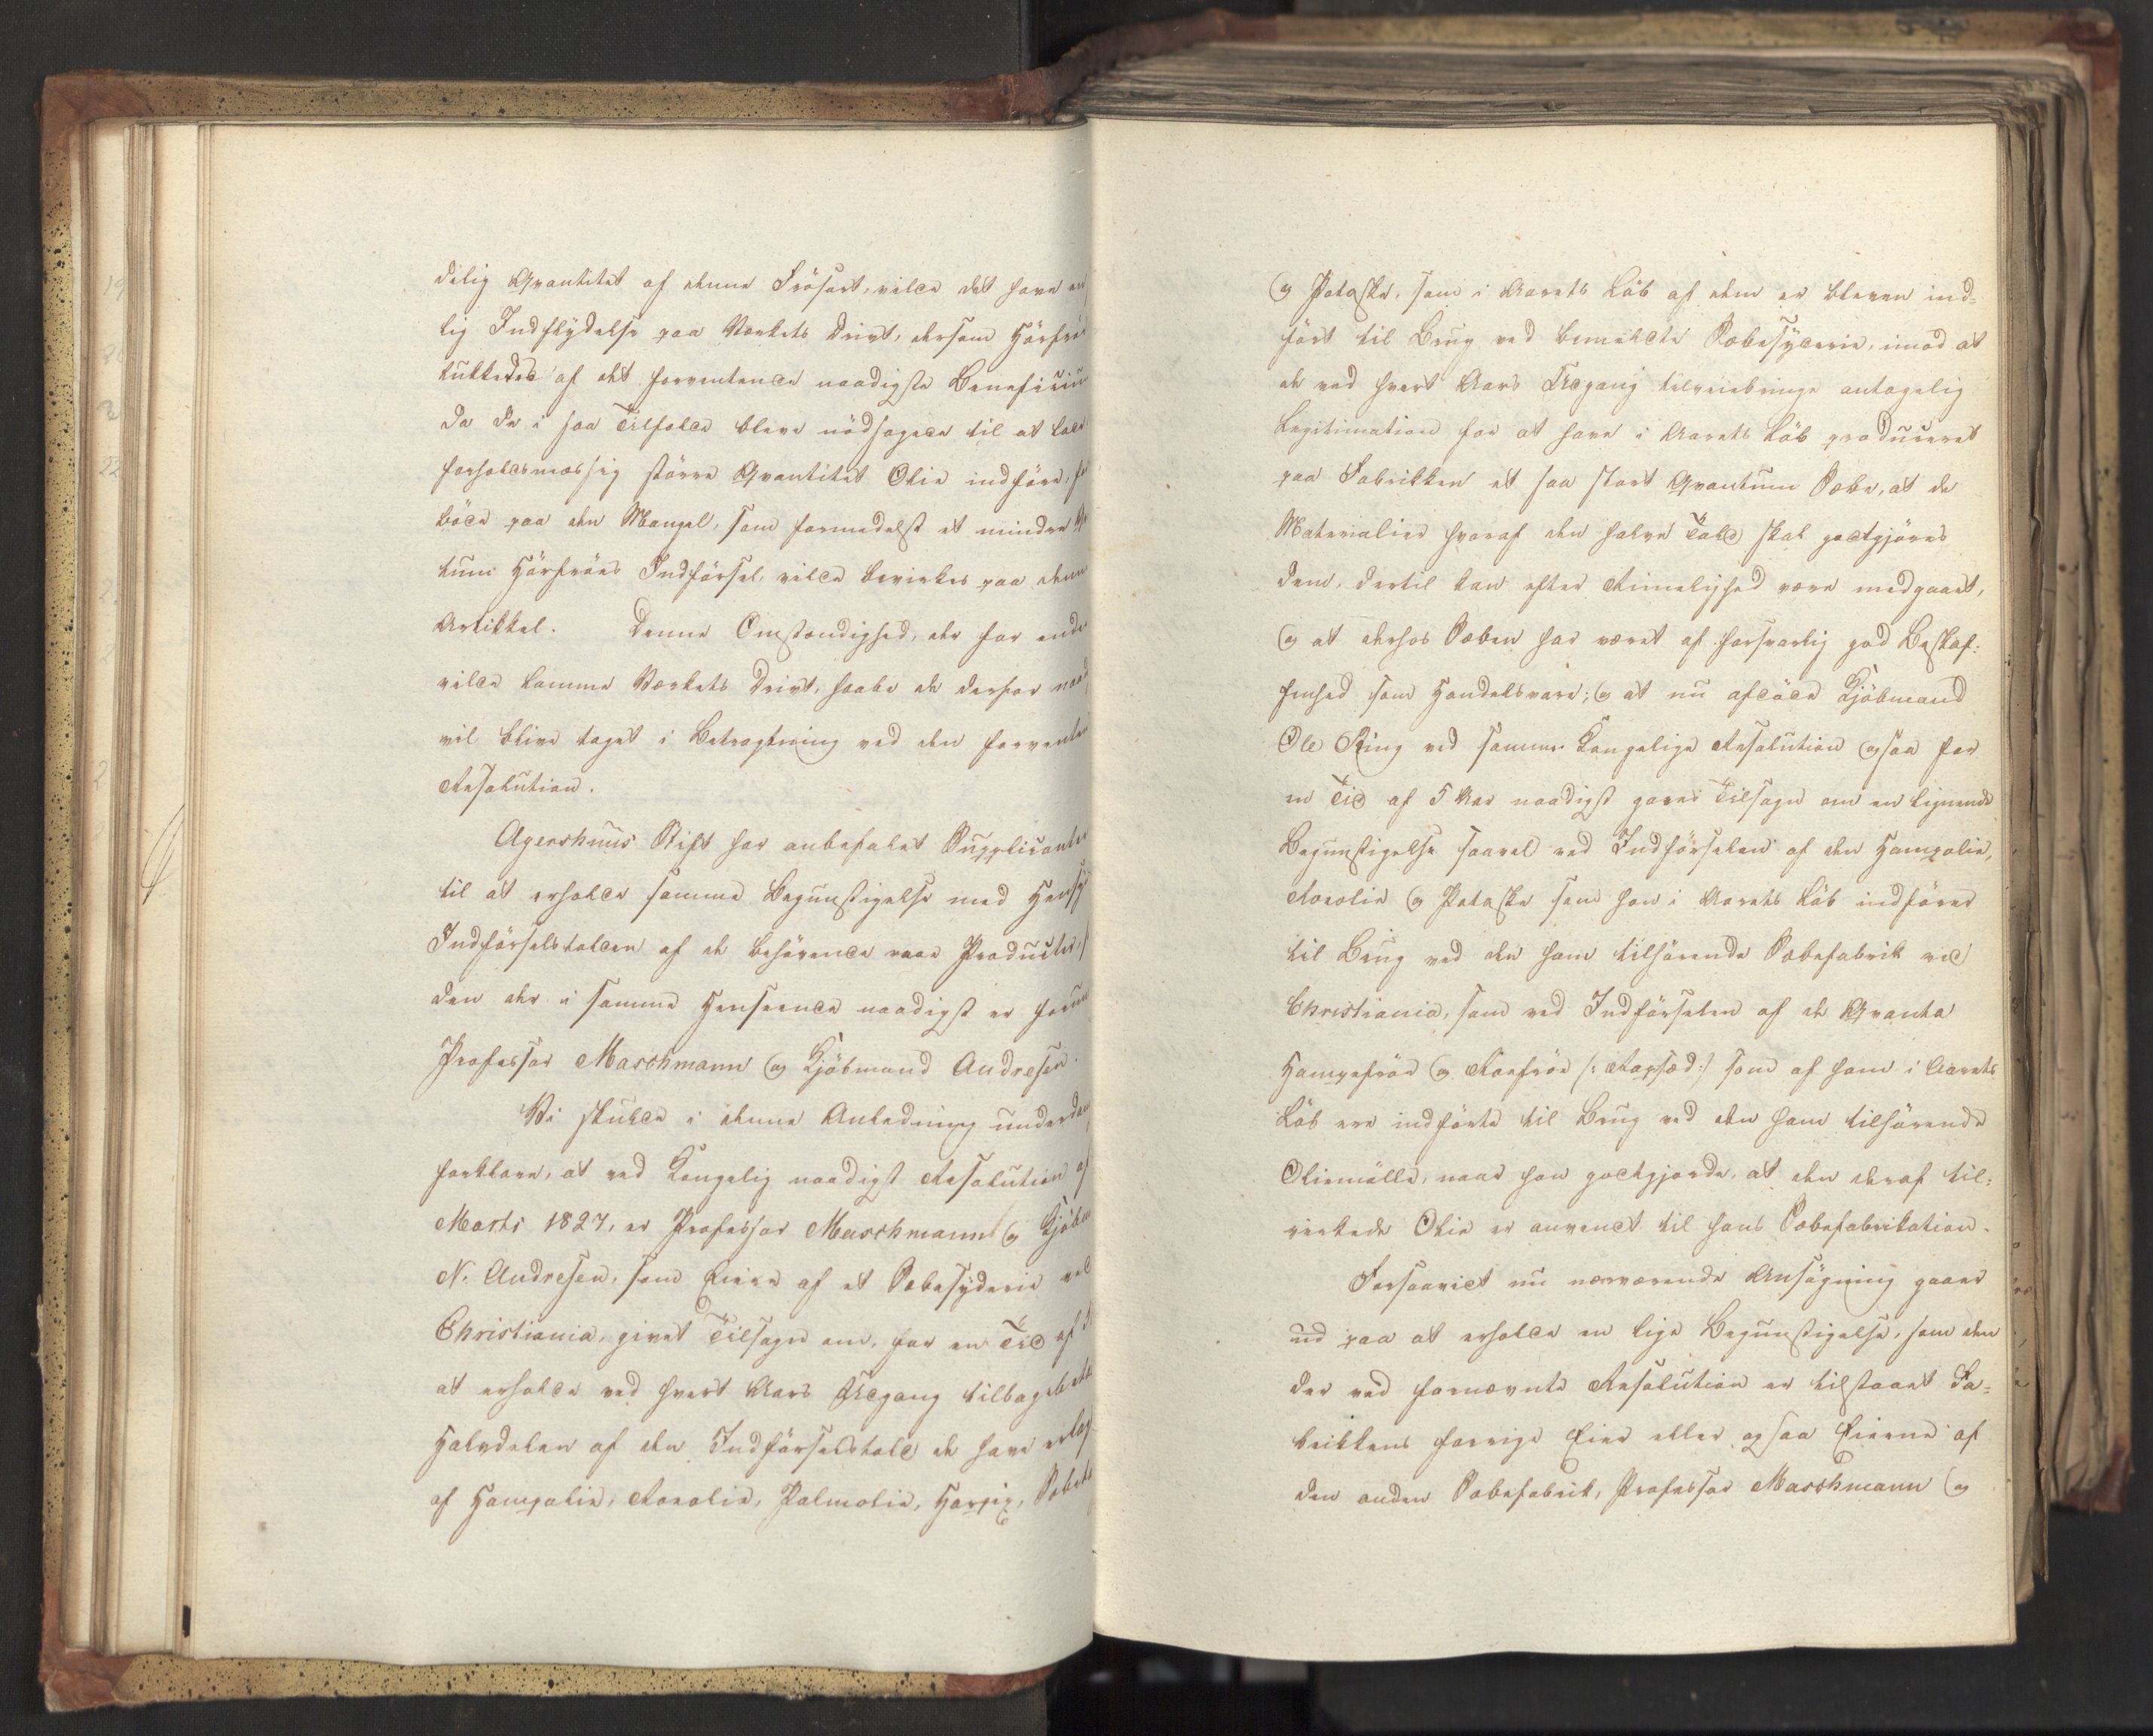 delig Qvantitet af denne Frösort, vilde det have en
lig Indflydelse paa Værkets Drivt, dersom Hörfrö
lukkedes af det forventende naadigste Beneficium
da de i saa Tilfælde bleve nödsagede til at lade
forholdsmæssig större Qvantitet Olie indföre, for
böde paa den Mangel, som formedelst et mindre
tum Hörfröes Indförsel, vilde bevirkes paa denne
Artikkel. Denne Omstændighed, der for
vilde lamme Værkets Drivt, haabe de derfor naad
vil blive taget i Betragtning ved den forventede
Resolution.
Agershuus Stift har anbefalet Supplicanten
til at erholde samme Begunstigelse med Hensyn
Indförselstolden af de behövende raae Producter,
den der i samme Henseende naadigst er forund
Professor Maschmann og Kjöbmand Andresen.
Vi skulde i denne Anledning underdan
forklare, at ved Kongelig naadigst Resolution af
Marts 1827, er Professor Maschmann og Kjöbm
N. Andresen, som Eiere af et Sæbesyderie ved
Christiania, givet Tilsagn om, for en Tid af 5
at erholde ved hvert Aars Udgang tilbagebetalt
Halvdelen af den Indförselstold de have erlagt
af Hampolie, Roeolie, Palmolie, Harpix, Sæbe
og Potaske, som i Aarets Löb af dem er bleven ind-
fört til Brug ved bemeldte Sæbesyderie, imod at
de ved hvert Aars Udgang tilveiebringe antagelig
Legitimation for at have i Aarets Löb produceret
paa Fabrikken et saa stort Qvantum Sæbe, at de
Materialier hvoraf den halve Told skal godtgjöres
dem, dertil kan efter Rimelighed være medgaaet,
og at derhos Sæben har været af forsvarlig god Beskaf-
fenhed som Handelsvare; og at nu afdöde Kjöbmand
Ole Ring ved samme Kongelige Resolution ogsaa for
en Tid af 5 Aar naadigst gaves Tilsagn om en lignende
Begunstigelse saavel ved Indförselen af den Hampolie,
Roeolie og Potaske som han i Aarets Löb indförer
til Brug ved den ham tilhörende Sæbefabrik ved
Christiania, som ved Indförselen af de Qvanta
Hampefröe og Roefröe /: Rapsæd :/ som af ham i Aarets
Löb ere indförte til Brug ved den ham tilhörende
Oliemölle, naar han godtgjorde, at den deraf til-
virkede Olie er anvendt til hans Sæbefabrikation.
Forsaavidt nu nærværende Ansögning gaaer
ud paa at erholde en lige Begunstigelse, som den
der ved fornævnte Resolution er tilstaaet Fa-
brikkens forrige Eier eller ogsaa Eierne af
den anden Sæbefabrik, Professor Maschmann og